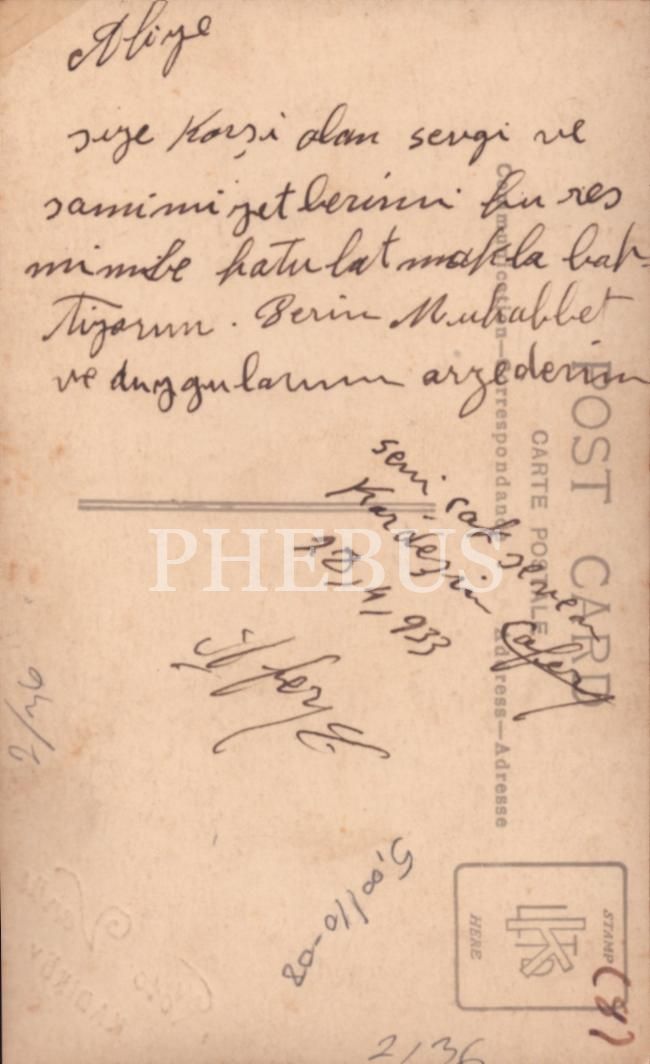 Aliye
size Karşi olan sevgi ve
samimiyetlerimi bu res
mimle hatırlatmakla bah-
tiyarım. Berin Muhabbet
ve duygularımı arzederim
seni çok seven
Kardeşin Cafer
933
PHEBUS
POST CARD
CARTE POSTALE
Communication—Correspondance
Address—Adresse
STAMP
HERE
Foto
KADIKÖY
5,00/10-08
2/36
(8)
2136